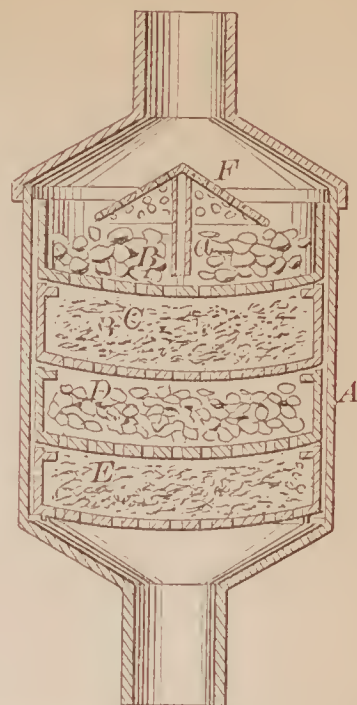 F
B
C
D
A
E